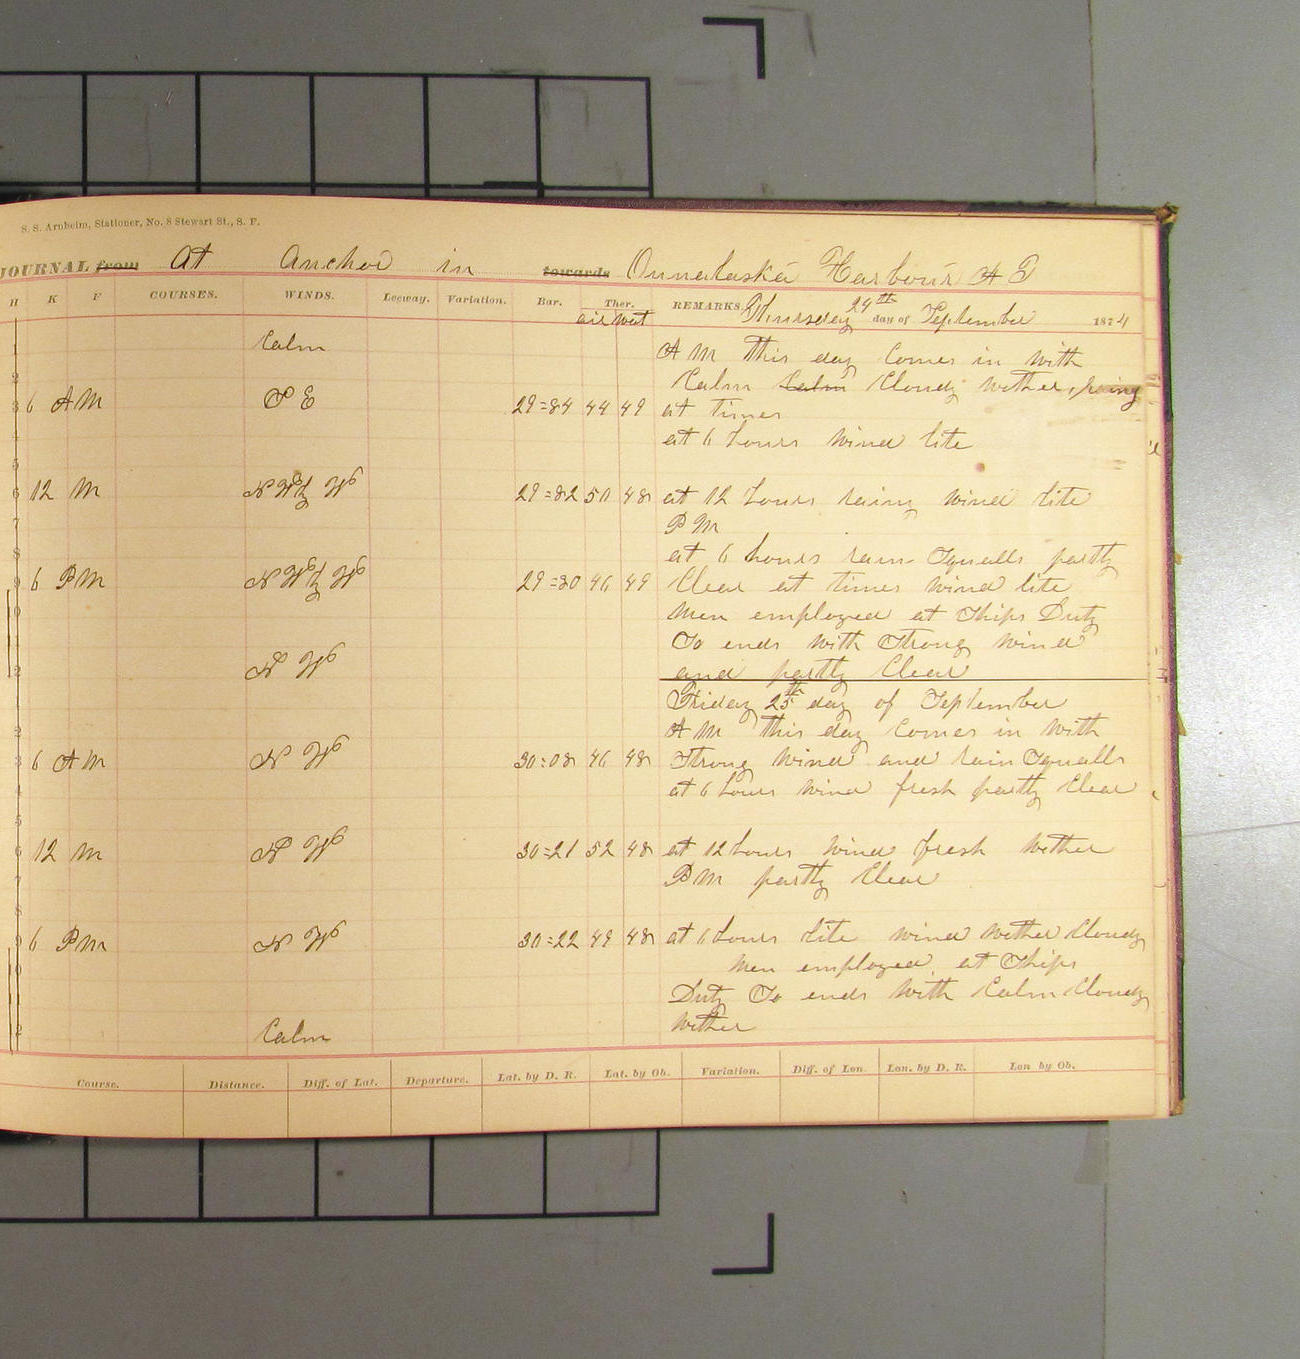 S. S. Arnheim, Stationer, No. 8 Stewart St., S. F.
JOURNAL from At Anchor in towards Ounalaska Harbour A T
H K F COURSES. WINDS. Leeway. Variation. Bar. Ther. REMARKS, Thursday 24th day of September 1874
air wat
Calm A M This day Comes in with
Calm Calm Cloudy wether,
6 A M S E 29=84 44 49 at times
at 6 hours wind lite
12 M N W by W 29=82 50 48 at 12 hours rainy wind lite
P M
at 6 hours rain Squalls partly
6 P M N W by W 29=80 46 49 Clear at times wind lite
men employed at Ships Duty
So ends with Strong wind
N W and partly Clear
Friday 25th day of September
A M This day Comes in with
6 A M N W 30=08 46 48 Strong wind and rain Squalls
at 6 hours wind fresh partly Clear
12 M N W 30=21 52 48 at 12 hours wind fresh wether
P M partly Clear
6 P M N W 30=22 49 48 at 6 hours lite wind wether Cloudy
men employed at Ships
Duty So ends with Calm Cloudy
Calm wether
Course. Distance. Diff. of Lat. Departure. Lat. by D. R. Lat. by Ob. Variation. Diff. of Lon. Lon. by D. R. Lon by Ob.